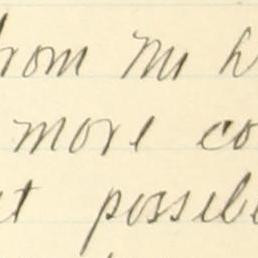 from Mr
more co
t possib